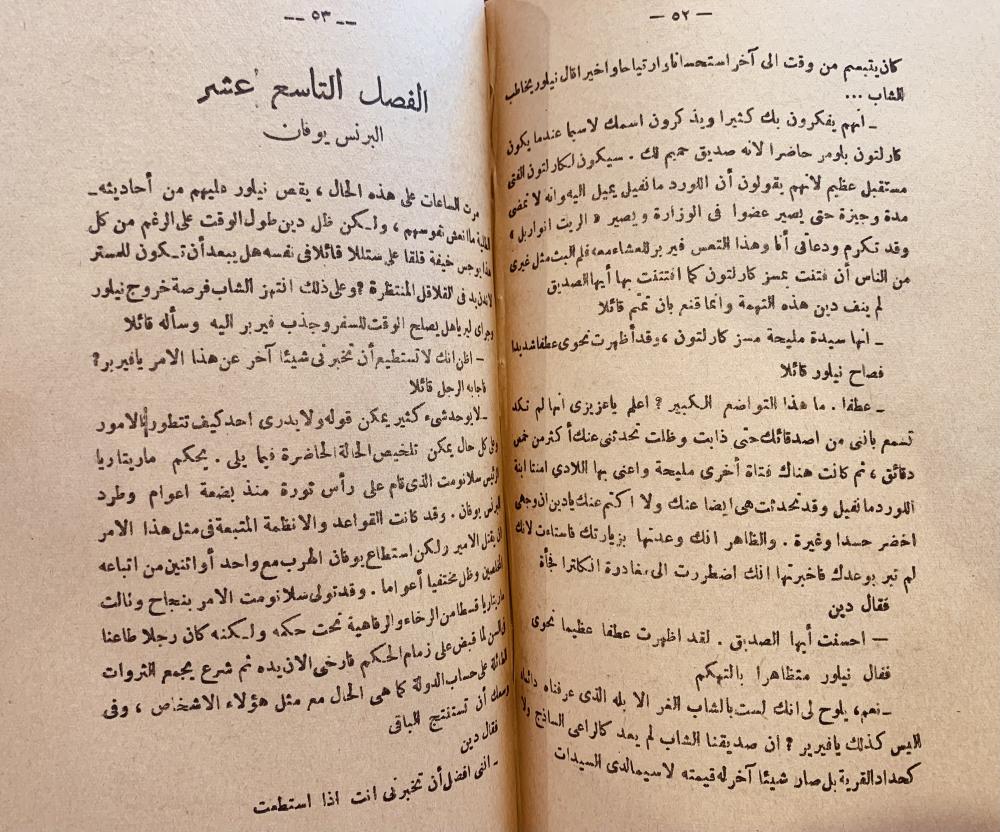 — ٥٢ —
كان يتبسم من وقت الى آخر استحسانا وارتياحا واخيرا قال نيلور يخاطب
الشاب ...
ـ انهم يفكرون بك كثيرا ويذكرون اسمك لاسيما عندما يكون
كارلتون بلومر حاضرا لانه صديق حميم لك . سيكون لكارلتون الفتى
مستقبل عظيم لانهم يقولون أن اللورد مانفيل يميل اليه وانه لا تمضى
مدة وجيزة حتى يصير عضوا فى الوزارة ويصير « الريت انورابل »
وقد تكرم ودعانى أنا وهذا التعس فيربر للعشاء معه فلم البث مثل غيرى
من الناس أن فتنت بمسز كارلتون كما افتتنت بها أيها الصديق
لم ينف دين هذه التهمة وانما قنع بان تمتم قائلا
ـ انها سيدة مليحة مسز كارلتون ، وقد أظهرت نحوى عطفا شديدا
فصاح نيلور قائلا
ـ عطفا . ما هذا التواضع الكبير ? اعلم ياعزيزى انها لم تكد
تسمع بانى من اصدقائك حتى ذابت وظلت تحدثنى عنك أكثر من خمس
دقائق ، ثم كانت هناك فتاة أخرى مليحة واعنى بها اللادى امنتا ابنة
اللورد مانفيل وقد تحدثت هى ايضا عنك ولا اكتم عنك يادين ان وجهى
اخضر حسدا وغيرة . والظاهر انك وعدتها بزيارتك فاستاءت لانك
لم تبر بوعدك فاخبرتها انك اضطررت الى مغادرة انكلترا فجأة
فقال دين
— احسنت أيها الصديق . لقد اظهرت عطفا عظيما نحوى
فقال نيلور متظاهرا بالتهكم
ـ نعم، يلوح لى انك لست بالشاب الغر الا بله الذى عرفناه دائما
اليس كذلك يافيربر ? ان صديقنا الشاب لم يعد كالراعى الساذج ولا
كحداد القرية بل صار شيئا آخر له قيمته لاسيما لدى السيدات
— ٥٣ —
الفصل التاسع عشر
البرنس يوفان
مرت الساعات على هذه الحال ، يقص نيلور عليهم من أحاديثه ـ
ما انعش نفوسهم ، ولكن ظل دين طول الوقت على الرغم من كل
هذا يوجس خيفة قلقا على ستللا قائلا فى نفسه هل يبعد أن تكون للمستر
يد فى القلاقل المنتظرة ? وعلى ذلك انتهز الشاب فرصة خروج نيلور
ليرياهل يصلح الوقت للسفر وجذب فيربر اليه وسأله قائلا
ـ اظن انك لا تستطيع أن تخبرنى شيئا آخر عن هذا الامر يافيربر ?
فاجابه الرجل قائلا
ـ لايوجد شىء كثير يمكن قوله ولا يدرى احد كيف تتطور الامور
وعلى كل حال يمكن تلخيص الحالة الحاضرة فيما يلى . يحكم ماريتاريا
الرئيس سلانومت الذى قام على رأس ثورة منذ بضعة اعوام وطرد
البرنس يوفان . وقد كانت القواعد والانظمة المتبعة فى مثل هذا الامر
ان يقتل الامير ولكن استطاع يوفان الهرب مع واحد أو اثنين من اتباعه
المخلصين وظل مختفيا أعواما . وقد تولى سلانومت الامر بنجاح ونالت
ماريتاريا قسطا من الرخاء والرفاهية تحت حكمه ولكنه كان رجلا طاعنا
فى السن لما قبض على زمام الحكم فارخى الان يده ثم شرع يجمع الثروات
الطائلة على حساب الدولة كما هى الحال مع مثل هؤلاء الاشخاص ، وفى
وسعك أن تستنتج الباقى
فقال دين
ـ انى افضل أن تخبرنى انت اذا استطعت